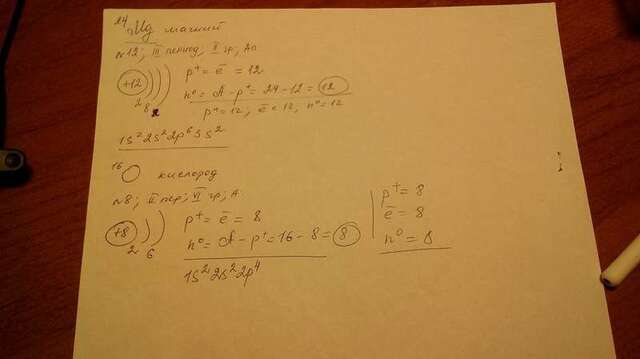 24 Mg магний
№12; III период; II гр; А
+12 ) ) )
2 8 2
p⁺ = ē = 12
n⁰ = A - p⁺ = 24 - 12 = 12
p⁺ = 12; ē = 12, n⁰ = 12
1s² 2s² 2p⁶ 3s²
16 O кислород
№8; II пер; VI гр; А
+8 ) )
2 6
p⁺ = ē = 8
n⁰ = A - p⁺ = 16 - 8 = 8
1s² 2s² 2p⁴
p⁺ = 8
ē = 8
n⁰ = 8